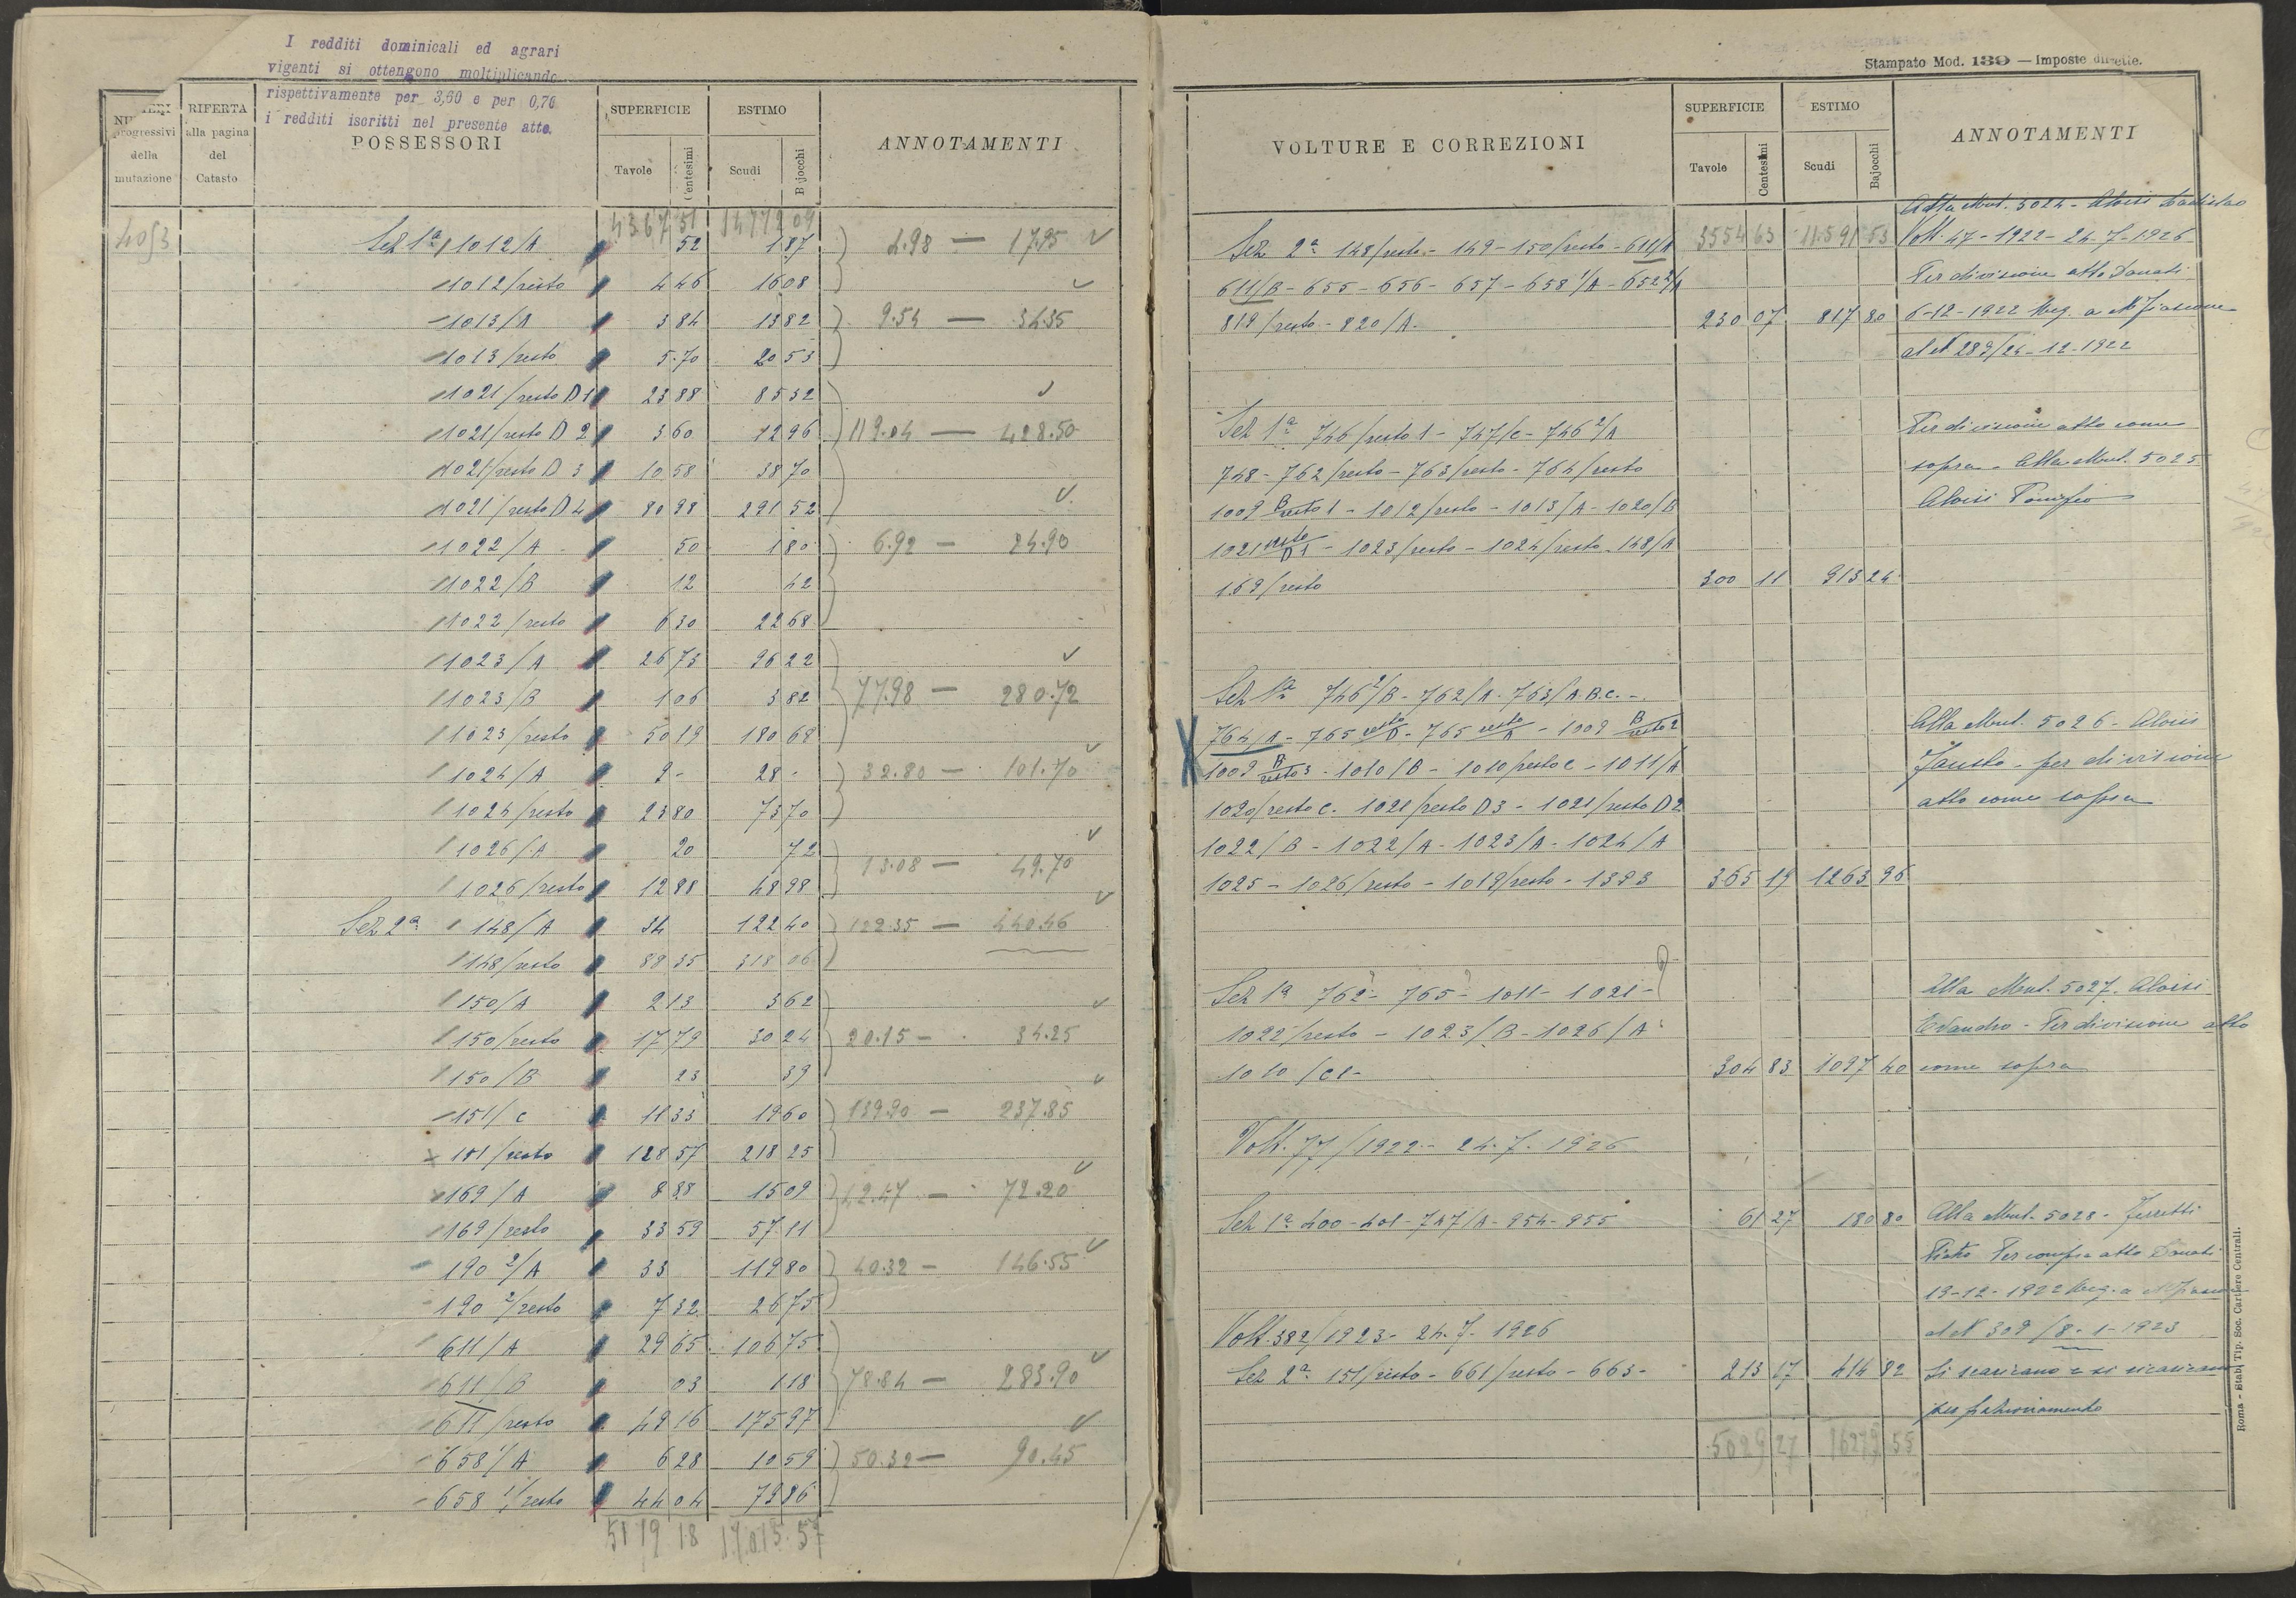 I redditi dominicali ed agrari
vigenti si ottengono moltiplicando
rispettivamente per 3,60 e per 0,76
i redditi iscritti nel presente atto.
progressivi della mutazione
RIFERTA alla pagina del Catasto
POSSESSORI
SUPERFICIE
Tavole Centesimi
ESTIMO
Scudi Bajocchi
ANNOTAMENTI
4367 51 14771 09
4053 Sez 1ª 1012/A 52 1 87 4.98 — 17.95
1012/resto 4 46 16 08
1013/A 3 84 13 82 9.54 — 34.35
1013/resto 5.70 20 53
1021/resto D1 23 88 85 32
1021/resto D 2 3 60 12 96 119.04 — 428.50
1021/resto D 3 10 58 38 70
1021/resto D4 80 98 291 52
1022/A 50 1 80 6.92 — 24.90
1022/B 12 42
1022/resto 6 30 22 68
1023/A 26 73 96 22
1023/B 1 06 3 82 77.98 — 280.72
1023/resto 50 19 180 68
1024/A 9 - 28 - 32.80 — 101.70
1024/resto 23 80 73 70
1026/A 20 72
1026/resto 12 88 48 98 13.08 — 49.70
Sez 2ª 148/A 34 122 40 122.35 — 440.46
148/resto 88 35 318 06
150/A 2 13 3 62
150/resto 17 79 30 24 20.15 — 34.25
150/B 23 39
151/C 11 33 19 60 139.90 — 237.85
151/resto 128 57 218 25
169/A 8 88 15 09 42.47 — 72.20
169/resto 33 59 57 11
190 2/A 33 119 80 40.32 — 146.55
190 2/resto 7 32 26 75
611/A 29 65 106 75
611/B 03 1 18 78.84 — 283.90
611/resto 49 16 175 97
658 1/A 6 28 10 59 50.32 — 90.45
658 1/resto 44 04 79 86
5119 18 17.015.57
Stampato Mod. 139 — Imposte dirette.
VOLTURE E CORREZIONI
SUPERFICIE
Tavole Centesimi
ESTIMO
Scudi Bajocchi
ANNOTAMENTI
Alla Mut. 5024 - Aloisi Ladislao
Sez 2ª 148/resto - 149 - 150/resto - 611/A 3554 63 11.591 53 Volt. 47 - 1922 - 24-7-1926
611/B - 655 - 656 - 657 - 658 1/A - 652 2/A Per divisione atto Donati
819/resto - 820/A. 230 07 817 80 6-12-1922 Reg. a M/fiascone
al N 289/24-12-1922
Sez 1ª 746/resto 1 - 747/C - 746 2/A Per divisione atto come
748 - 762/resto - 763/resto - 764/resto sopra - Alla Mut. 5025
1009 B/resto 1 - 1012/resto - 1013/A - 1020/B Aloisi
1021 resto/D1 - 1023/resto - 1024/resto - 148/A
159/resto 300 11 913 24
Sez 1ª 746 2/B - 762/A - 763/A.B.C. -
764/A - 765 resto - 765 resto - 1009 B/resto 2 Alla Mut. 5026 - Aloisi
1009 B/resto 3 - 1010/B - 1010/resto C - 1011/A Fausto - per divisione
1020/resto C - 1021/resto D3 - 1021/resto D2 atto come sopra
1022/B - 1022/A - 1023/A - 1024/A
1025 - 1026/resto - 1019/resto - 1393 365 19 1263 96
Sez 1ª 762 - 765 - 1011 - 1021 - Alla Mut. 5027. Aloisi
1022/resto - 1023/B - 1026/A Evandro - Per divisione atto
1010/C1 - 304 83 1097 40 come sopra
Volt. 77/1922 - 24.7.1926
Sez 1ª 400 - 401 - 747/A - 954 - 955 61 27 180 80 Alla Mut. 5028 - Ferretti
Per compra atto Donati
19-12-1922 Reg. a M/fiascone
Volt. 382/1923 - 24.7.1926 al N 309/8-1-1923
Sez 2ª 151/resto - 661/resto - 663 - 213 17 414 82 Si scaricano e si ricaricano
per frazionamento
5029 27 16279 55
Roma - Stab. Tip. Soc. Cartiere Centrali.